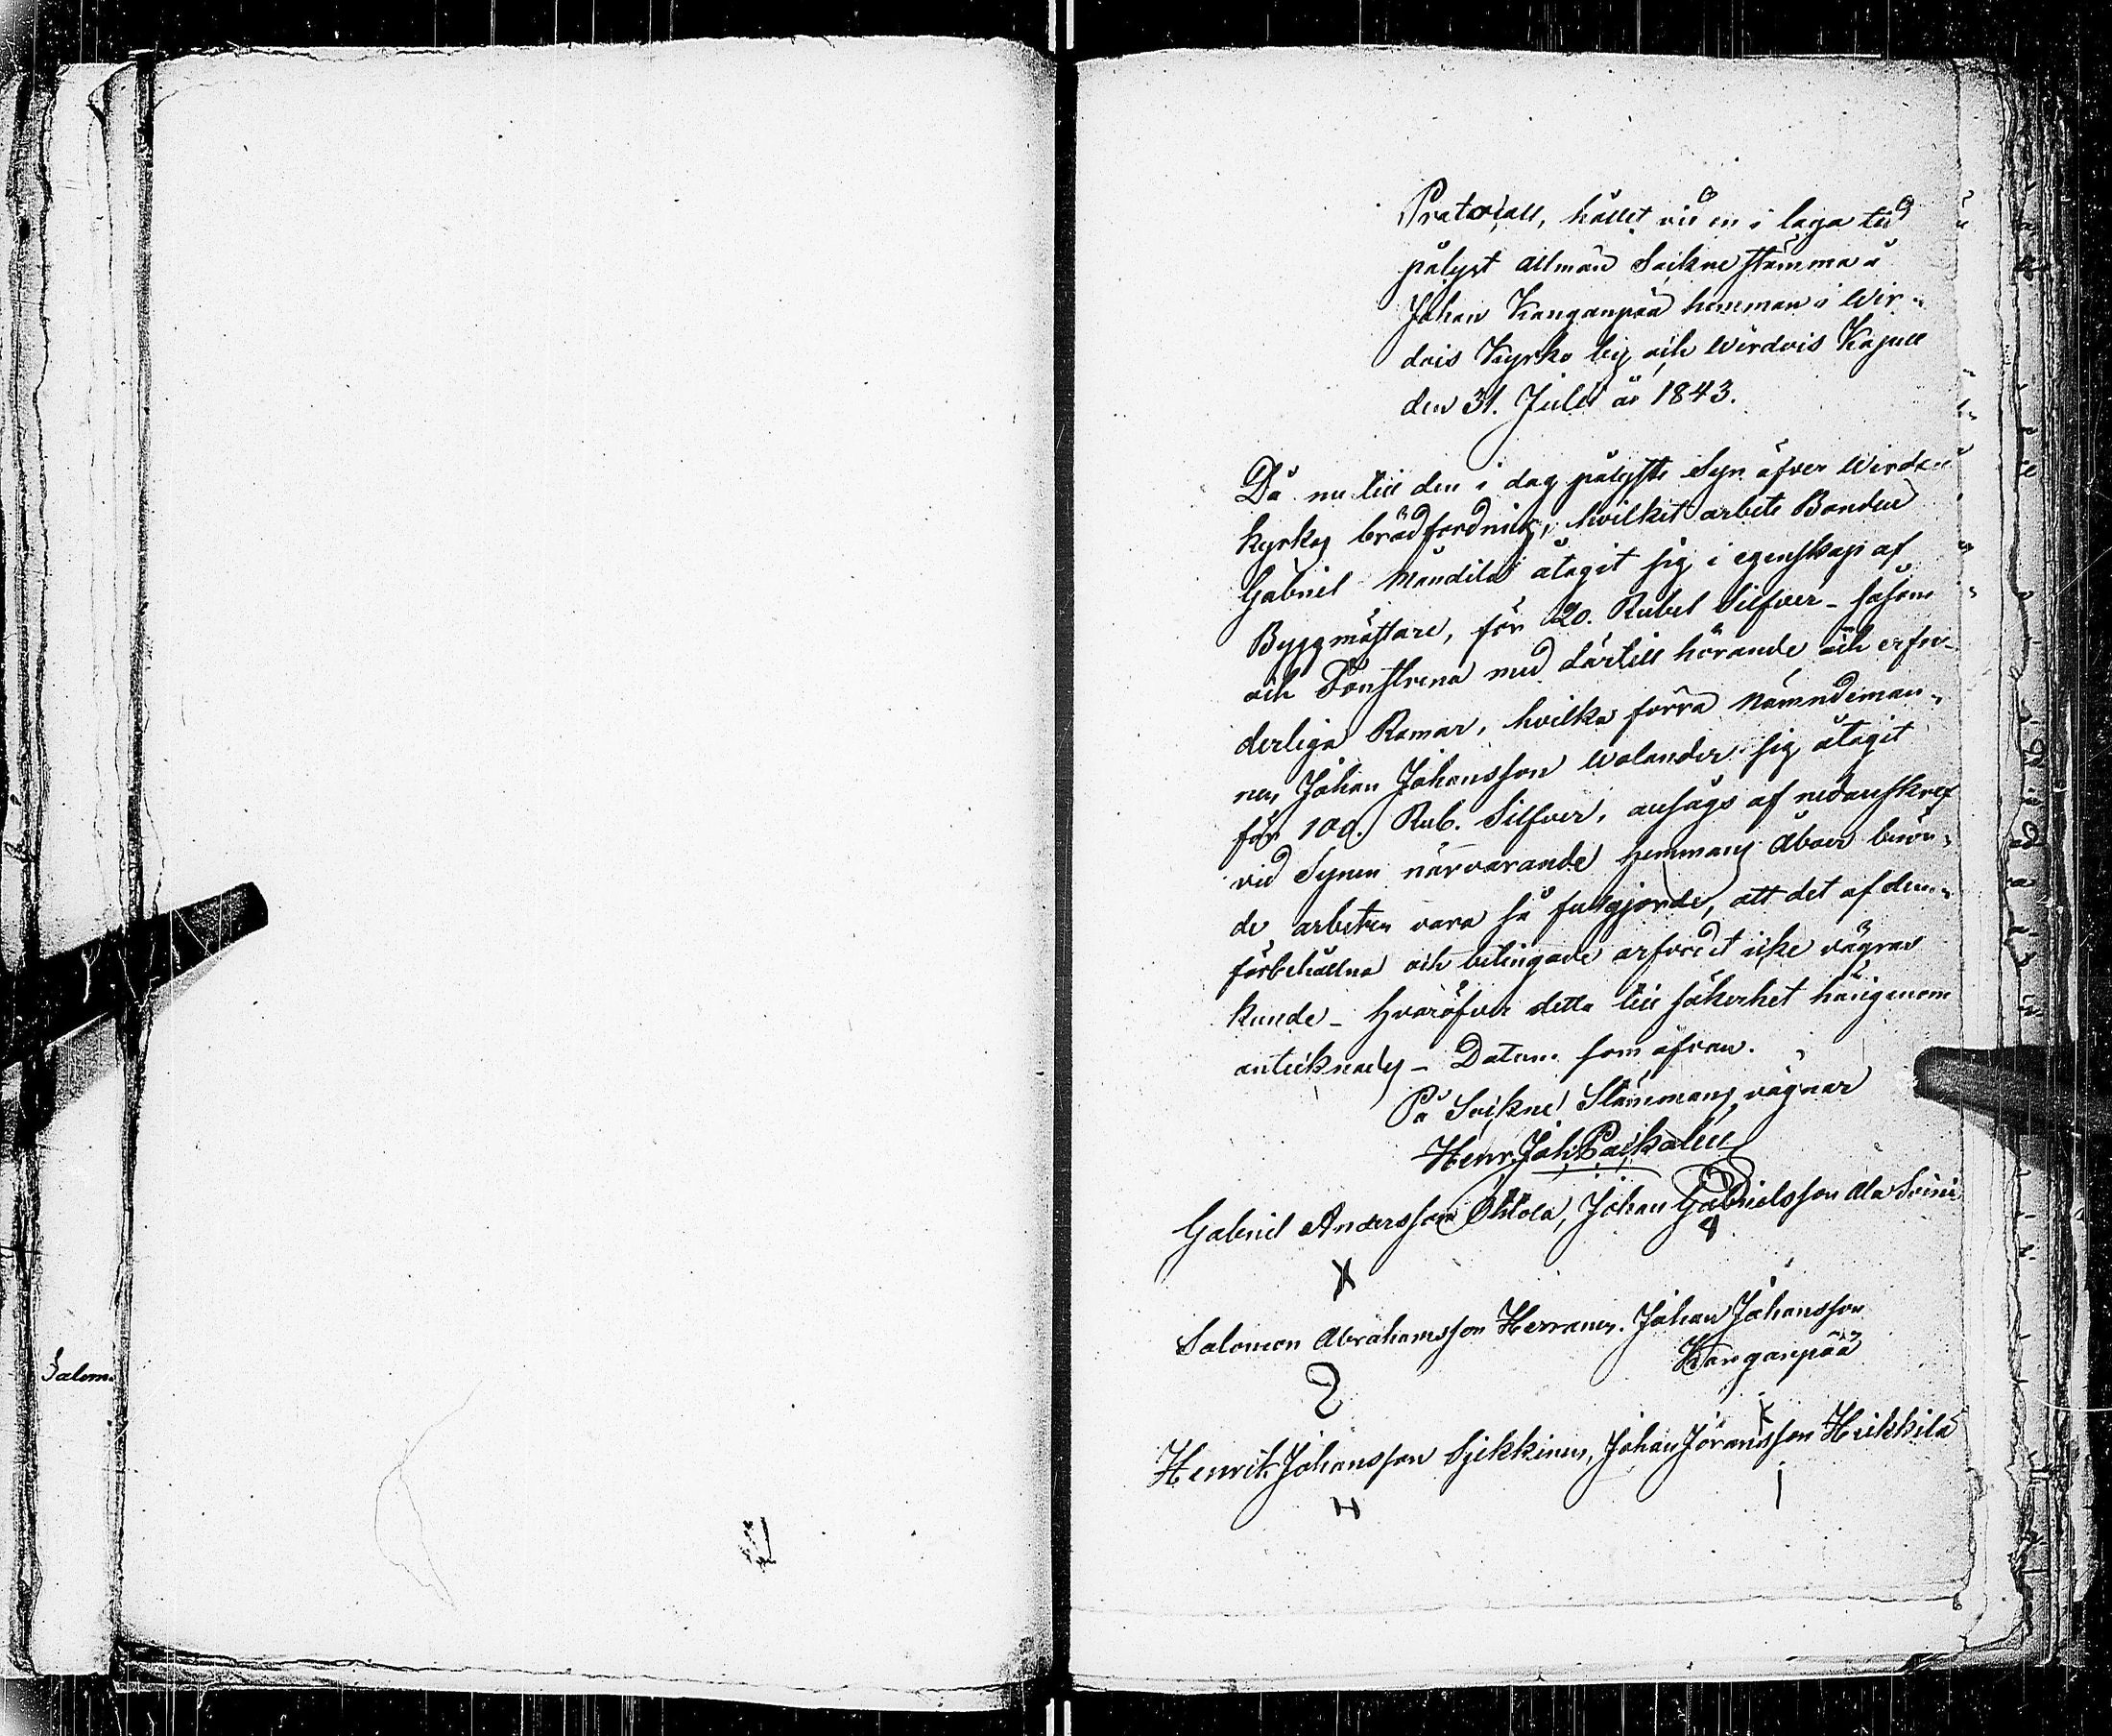 Protocoll, hållet vid en i laga tid
pålyst allmän Sockne stämma å
Johan Kanganpää hemman i Wir-
dois Kyrko by och Wirdois Kapell
den 31. Julii år 1843.
Då nu till den i dag pålyste Syn öfver Wirdois
kyrkas brädfordning, hvilket arbete Bonden
Gabriel Mandila åtagit sig i egenskap af
Byggmästare, för 20. Rubel Silfver – såsom
och Fönstrena med därtill hörande och erfor-
derliga Ramar, hvilka förra Nämndeman-
nen Johan Johansson Walander sig åtagit
för 100. Rub. Silfver, ansågs af nedanskref
vid Synen närvarande hemmans Åboer berör-
de arbeten vara så fullgjorde, att det af dem
förbehållna och betingade arfvodet icke vägras
kunde – Hvaröfver detta till säkerhet härigenom
antecknades – Datum som ofvan.
På Sockne Stämmans vägnar
Henr. Joh. Packalen
Gabriel Andersson Ohtola, Johan Gabrielsson Ala Soini
X
Salomon Abrahamsson Herranen. Johan Johansson
Kanganpää
Henrik Johansson Sjekkinen, Johan Göransson Heikkilä
H
Salom.